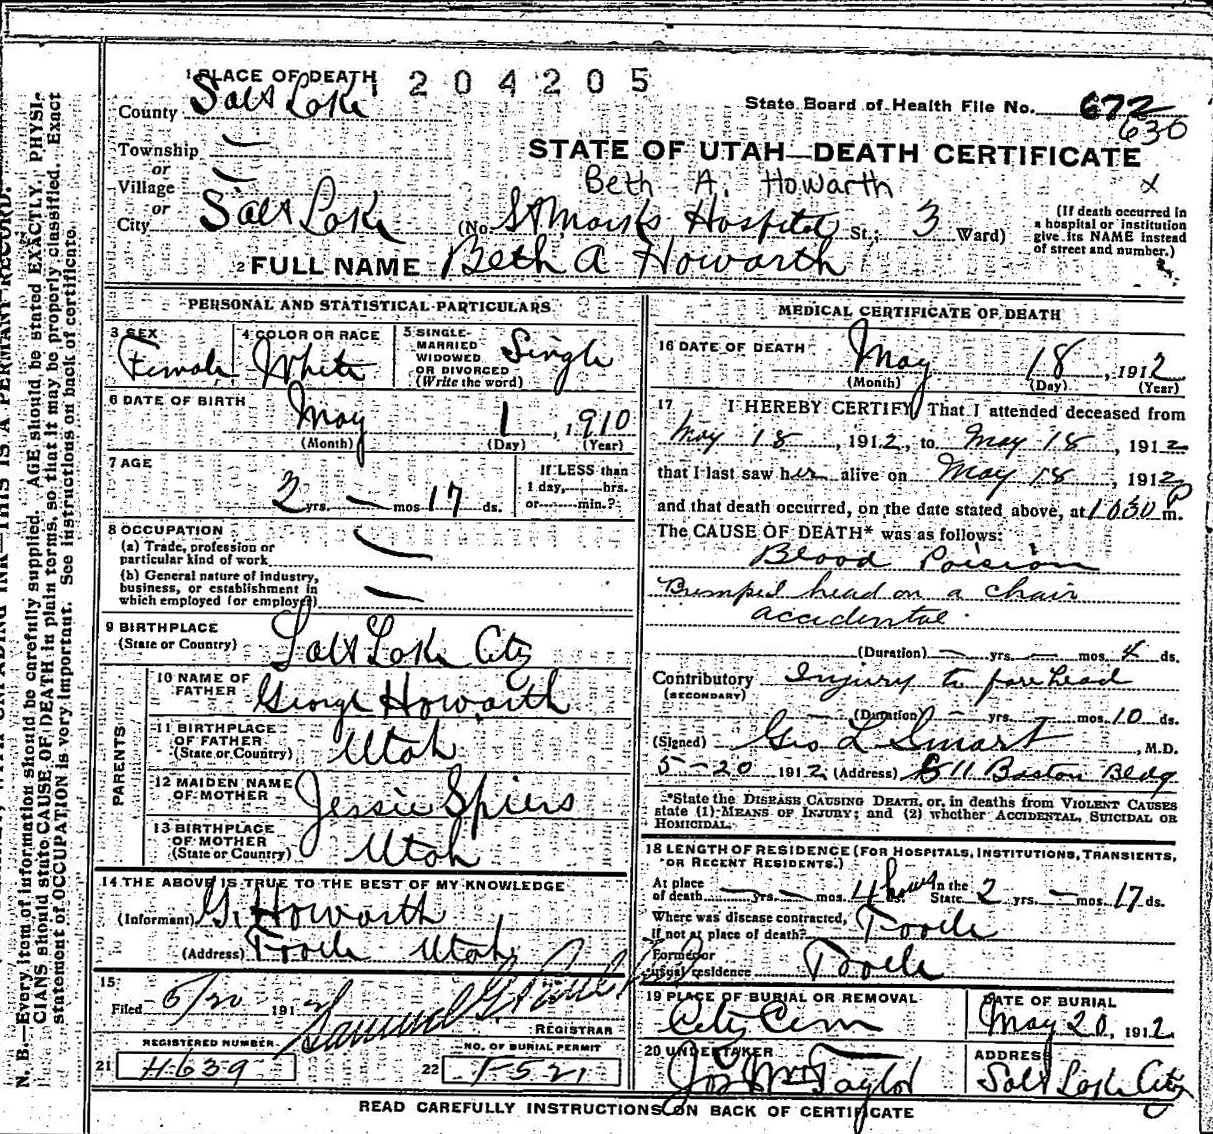 1 PLACE OF DEATH 204205
County Salt Lake
State Board of Health File No. 672
630
Township —
or
Village —
or
City Salt Lake
STATE OF UTAH—DEATH CERTIFICATE
Beth A. Howarth x
(No. St Marks Hospital St.; 3 Ward)
(If death occurred in a hospital or institution give its NAME instead of street and number.)
2 FULL NAME Beth A Howarth
PERSONAL AND STATISTICAL PARTICULARS
3 SEX Female
4 COLOR OR RACE White
5 SINGLE- MARRIED WIDOWED OR DIVORCED (Write the word) Single
6 DATE OF BIRTH May 1, 1910
(Month) (Day) (Year)
7 AGE
2 yrs. — mos 17 ds.
If LESS than 1 day, hrs. or min.?
8 OCCUPATION
(a) Trade, profession or particular kind of work —
(b) General nature of industry, business, or establishment in which employed (or employer) —
9 BIRTHPLACE (State or Country) Salt Lake City
PARENTS
10 NAME OF FATHER George Howarth
11 BIRTHPLACE OF FATHER (State or Country) Utah
12 MAIDEN NAME OF MOTHER Jessie Spiers
13 BIRTHPLACE OF MOTHER (State or Country) Utah
14 THE ABOVE IS TRUE TO THE BEST OF MY KNOWLEDGE
(Informant) G. Howarth
(Address) Tooele Utah
15
Filed 5/20 191
Samuel G. Paul
REGISTRAR
REGISTERED NUMBER
21 H639
NO. OF BURIAL PERMIT
22 1521
MEDICAL CERTIFICATE OF DEATH
16 DATE OF DEATH May 18, 1912
(Month) (Day) (Year)
17 I HEREBY CERTIFY, That I attended deceased from
May 18, 1912, to May 18, 1912
that I last saw her alive on May 18, 1912
and that death occurred, on the date stated above, at 1030 P m.
The CAUSE OF DEATH* was as follows:
Blood Poision
Bumped head on a chair
accidental
(Duration) — yrs. — mos. 4 ds.
Contributory (SECONDARY) Injury to forehead
(Duration) — yrs. mos. 10 ds.
(Signed) Geo L Smart, M.D.
5-20 1912 (Address) 511 Boston Bldg
*State the DISEASE CAUSING DEATH, or, in deaths from VIOLENT CAUSES state (1) MEANS OF INJURY; and (2) whether ACCIDENTAL, SUICIDAL OR HOMICIDAL.
18 LENGTH OF RESIDENCE (FOR HOSPITALS, INSTITUTIONS, TRANSIENTS, OR RECENT RESIDENTS.)
At place of death — yrs. — mos. 4 hours ds. In the State 2 yrs — mos. 17 ds.
Where was disease contracted, If not at place of death? Tooele
Former or usual residence Tooele
19 PLACE OF BURIAL OR REMOVAL City Cem
DATE OF BURIAL May 20, 1912
20 UNDERTAKER Jos Wm Taylor
ADDRESS Salt Lake City
READ CAREFULLY INSTRUCTIONS ON BACK OF CERTIFICATE
THIS IS A PERMANENT RECORD.
N. B.—Every item of information should be carefully supplied. AGE should be stated EXACTLY. PHYSI-
CIANS should state CAUSE OF DEATH in plain terms, so that it may be properly classified. Exact
statement of OCCUPATION is very important. See instructions on back of certificate.